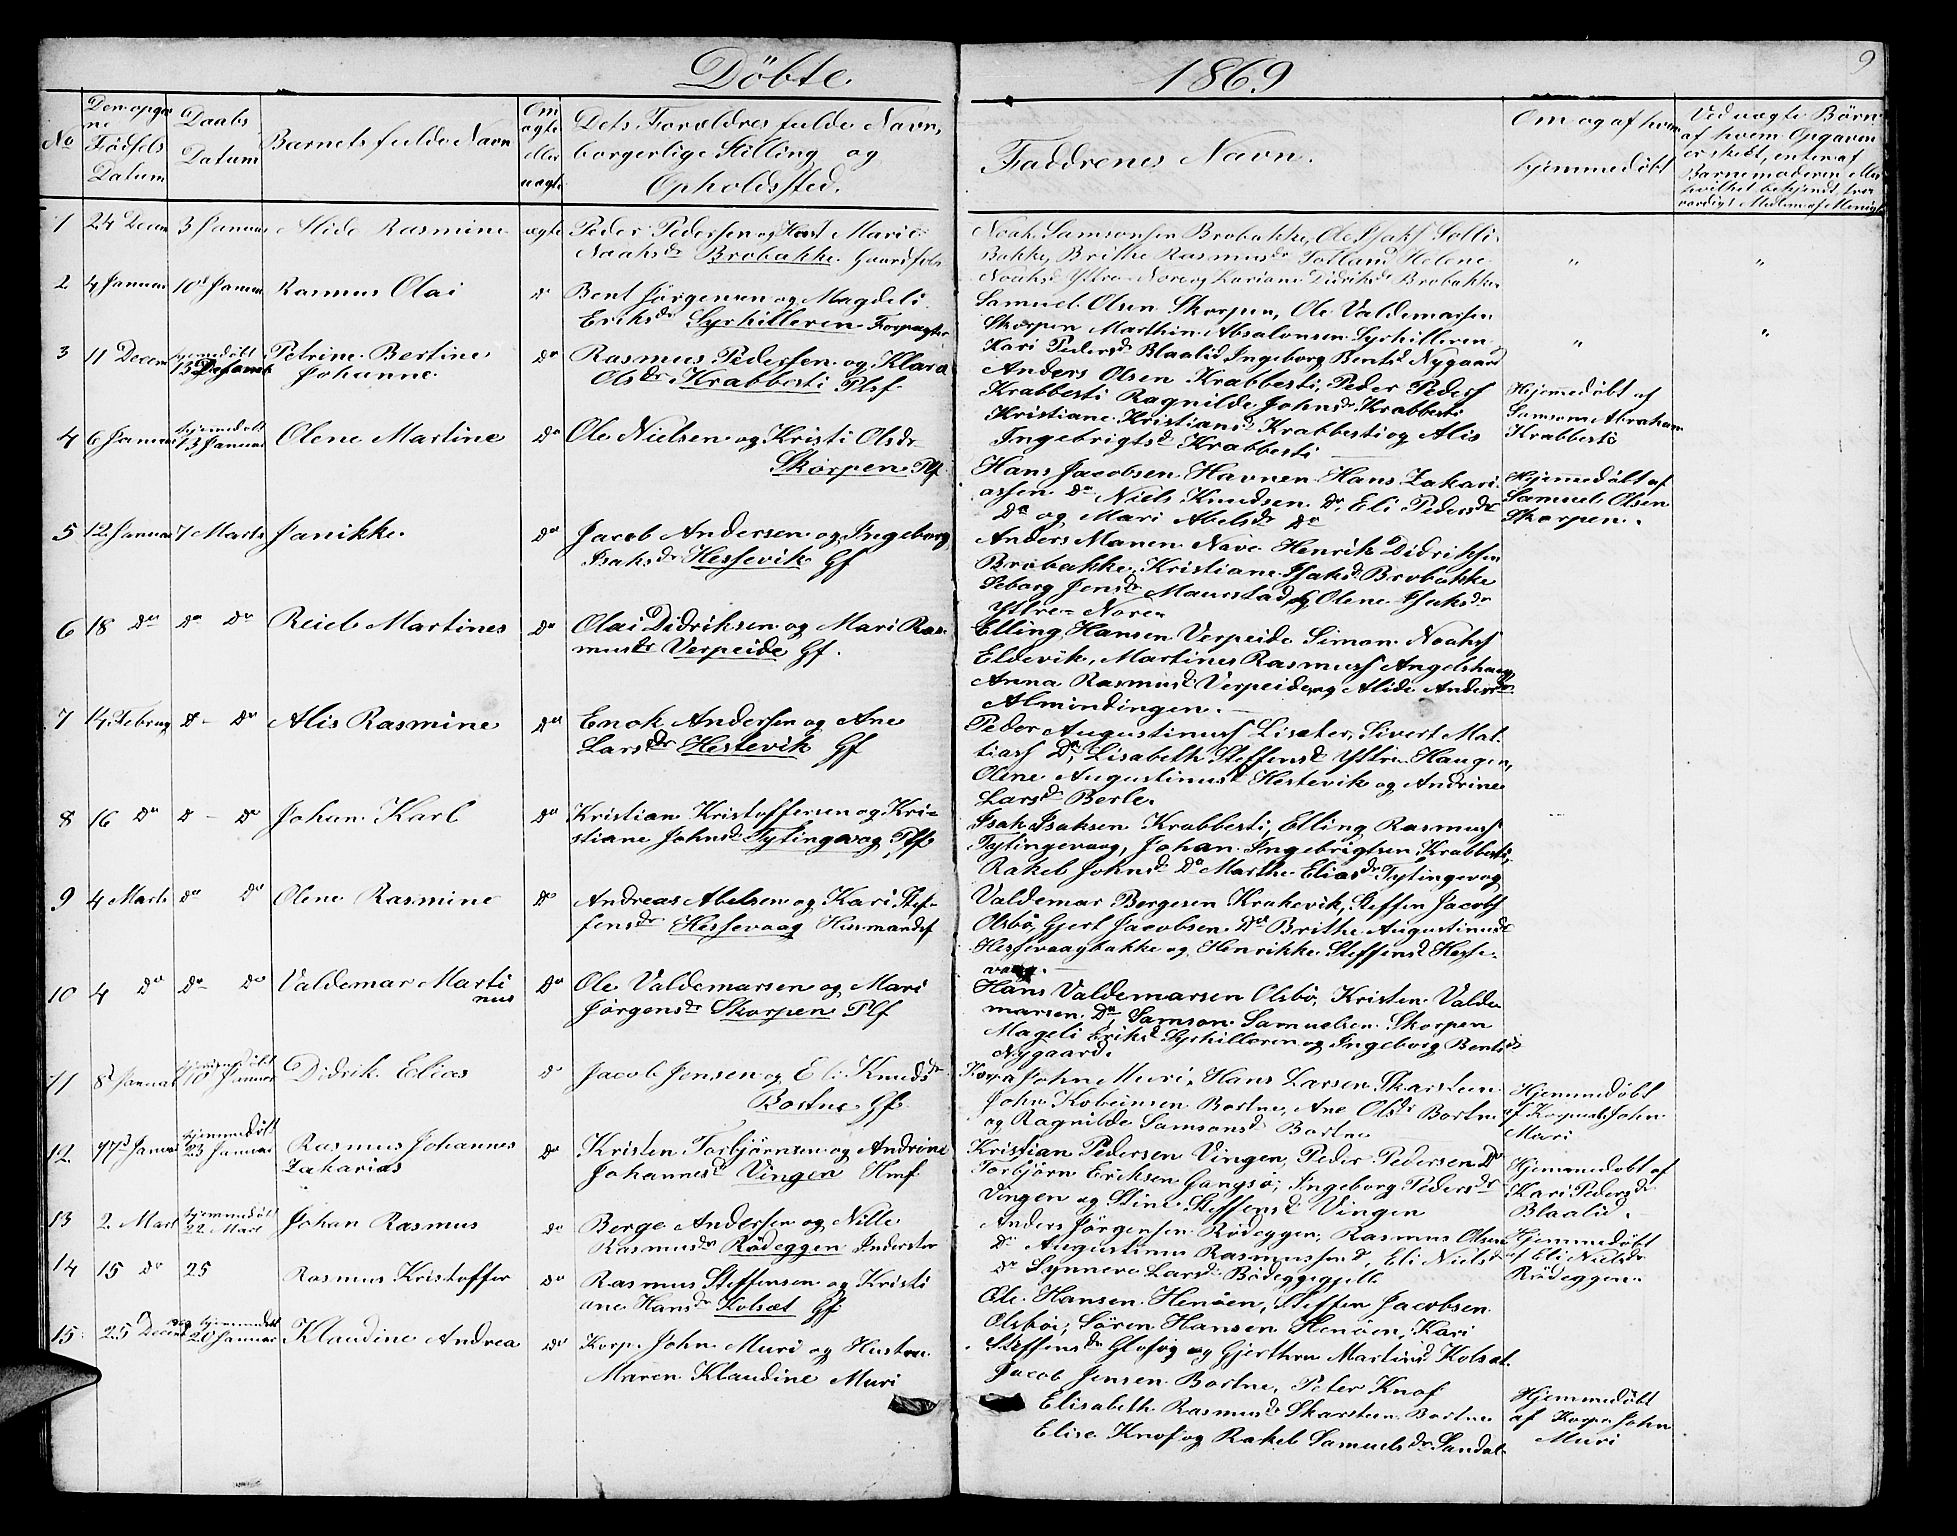 Döbte 1869
9
No
Den opgivne Födsels Datum
Daabs Datum
Barnets fulde Navn
Om ægte eller uægte
Dets Forældres fulde Navn,
borgerlige Stilling og
Opholdssted.
Faddrenes Navn.
Om og af hvem
hjemmedöbt
Ved uægte Börn
af hvem Opgaven
er skebt, enten af
Barnemoderen eller
1 24 Decem 3 Januar Alide Rasmine ægte Peder Pedersen og Host Marie
Noahsdr Brobakke Gaardfolk
Noah Samsonsen Brobakke, Ole Isaks Solli
Bakke, Brithe Rasmusdr Totland Helene
Noahsd Yttre-Nore og Lariane Didriksd Brobakke
2 4 Januar 10d Januar Rasmus Olai do Bent Jörgensen og Magdeli
Eriksdr Syrhilleren Forpagter
Samuel Olsen Skorpen, Ole Valdemarsen
Skorpen Marthin Absalonsen Syrhilleren
Kari Pedersd Blaalid, Ingeborg Bentsd Nygaard
3 11 Decem hjemmedöbt 13 Decemb Petrine Bertine
Johanne
do Rasmus Pedersen og Klara
Olsdr Krabbesti Plf
Anders Olsen Krabbesti, Peder Peders
Krabbesti Ragnilde Johnsd Krabbesti
Kristiane Kristiansd Krabbesti og Alis
Ingebrigtsd Krabbesti
Hjemmedöbt af
Samsom Abraham
Krabbestö
4 6 Januar hjemmedöbt 13 Januar Olene Martine do Ole Nielsen og Kristi Olsdr
Skorpen Plf
Hans Jacobsen Havnen Hans Zakari
assen do Niels Knudsen do Eli Pedersdr
do og Mari Abelsdr do
Hjemmedöbt af
Samuel Olsen
Skorpen.
5 12 Januar 7 Marts Janikke do Jacob Andersen og Ingeborg
Isaksdr Hessevik Gf
Anders Monen Nave Henrik Didriksen
Brobakke, Kristiane Isaksd Brobakke
Seborg Jensdr Maurstad og Olene Isaksdr
Yttre-Nore
6 18 do do do Reiel Martines do Olai Didriksen og Mari Ras
musdr Verpeide Gf.
Elling Hansen Verpeide Simon Noahs
Eldevik, Martines Rasmuss Angelshaug
Anna Rasmusd Verpeide og Alide Andersdr
Almindingen.
7 14 Februar do - do Alis Rasmine do Enok Andersen og Ane
Larsdr Hestevik Gf
Peder Augustinuss Liseter, Sivert Mat
tiass do, Lisabeth Steffensd Yttre Haugen,
Olene Augustinusd Hestevik og Andrine
Larsd Berle.
8 16 do do - do Johan Karl do Kristian Kristoffersen og Kri-
stiane Johnsd Tytingvaag Plf
Isak Isaksen Krabbesti, Elling Rasmuss
Tytingevaag, Johan Ingebrigtsen Krabbesti,
Rakel Johnsd do Marthe Eliasdr Tytingevag
9 4 Marts do do Olene Rasmine do Andreas Abelsen og Kari Stef-
fensdr Hessevaag Husmandsf
Valdemar Börgesen Krakevik, Steffen Jacobs
Olsbö, Gjert Jacobsen do Brithe Augustinusd
Hessevaagbakke og Henrikke Steffensd Hesse-
vaag.
10 4 do do do Valdemar Marti
nus
do Ole Valdemarsen og Mari
Jörgensdr Skorpen Plf
Hans Valdemarsen Olsbö, Kristen Valde
marsen do, Samson Samuelsen Skorpen
Mageli Eriksd Syrhilleren og Ingeborg Bentsd
Nygaard.
11 8d Januar hjemmedöbt 10 Januar Didrik Elias do Jacob Jensen og Eli Knudsdr
Bortne Gf
Korp John Muri, Hans Larsen Skarsteen
John Kolbeinsen Bortne, Ane Olsdr Bortne
og Ragnilde Samsonsd Bortne
Hjemmedöbt
af Korporal John
Muri
12 17d Januar hjemmedöbt 23 Januar Rasmus Johannes
Zakarias
do Kristen Torbjörnsen og Andrine
Johannesd Vingen Hmf
Kristian Pedersen Vingen, Peder Pedersen do
Torbjörn Eriksen Gangsö, Ingeborg Pedersdr
Vingen og Stine Steffensd Vingen
Hjemmedöbt af
Kari Pedersdr
Blaalid.
13 2 Mart hjemmedöbt 22 Mart Johan Rasmus do Börge Andersen og Nille
Rasmusdr Rödeggen Inderster
Anders Jörgensen Rödeggen, Rasmus Olsen
do Augustinus Rasmussen do, Eli Nielsd
do Synneve Larsd Bödeggegjelt
Hjemmedöbt
af Eli Nielsdr
Rödeggen.
14 15 do 25 Rasmus Kristoffer do Rasmus Steffensen og Kristi
ane Hansdr Kolsæt Gf
Ole Hansen Henöen, Steffen Jacobsen
Olsböe, Sören Hansen Henöen, Kari
Steffensdr og Gjerthru Martinsd Kolsæt
15 25 Decemb hjemmedöbt 20 Januar Klaudine Andrea do Korp. John Muri og Hustru
Maren Klaudine Muri
Jacob Jensen Bortne, Peter Knof
Elisabeth Rasmusdr Skarsteen Bortne
Elise Knof og Rakel Samuelsdr Sandal
Hjemmedöbt
af Korp. John
Muri